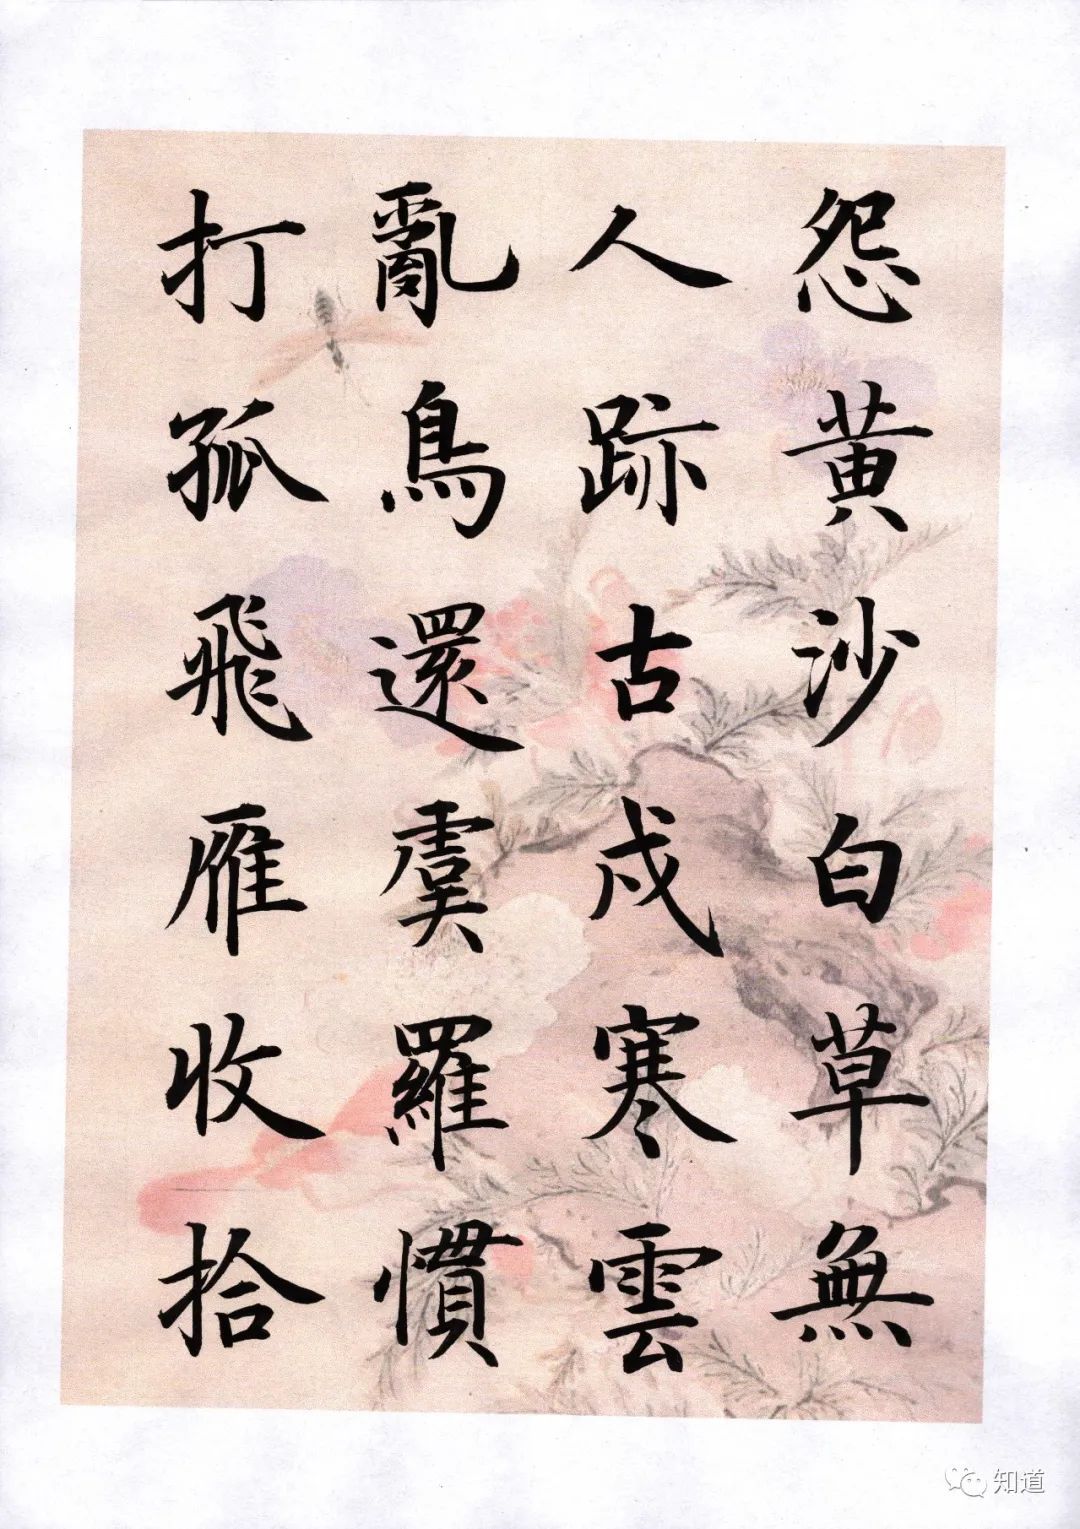 怨黄沙白草無
人跡古戍寒雲
亂鳥還虞羅慣
打孤飛雁收拾
知道